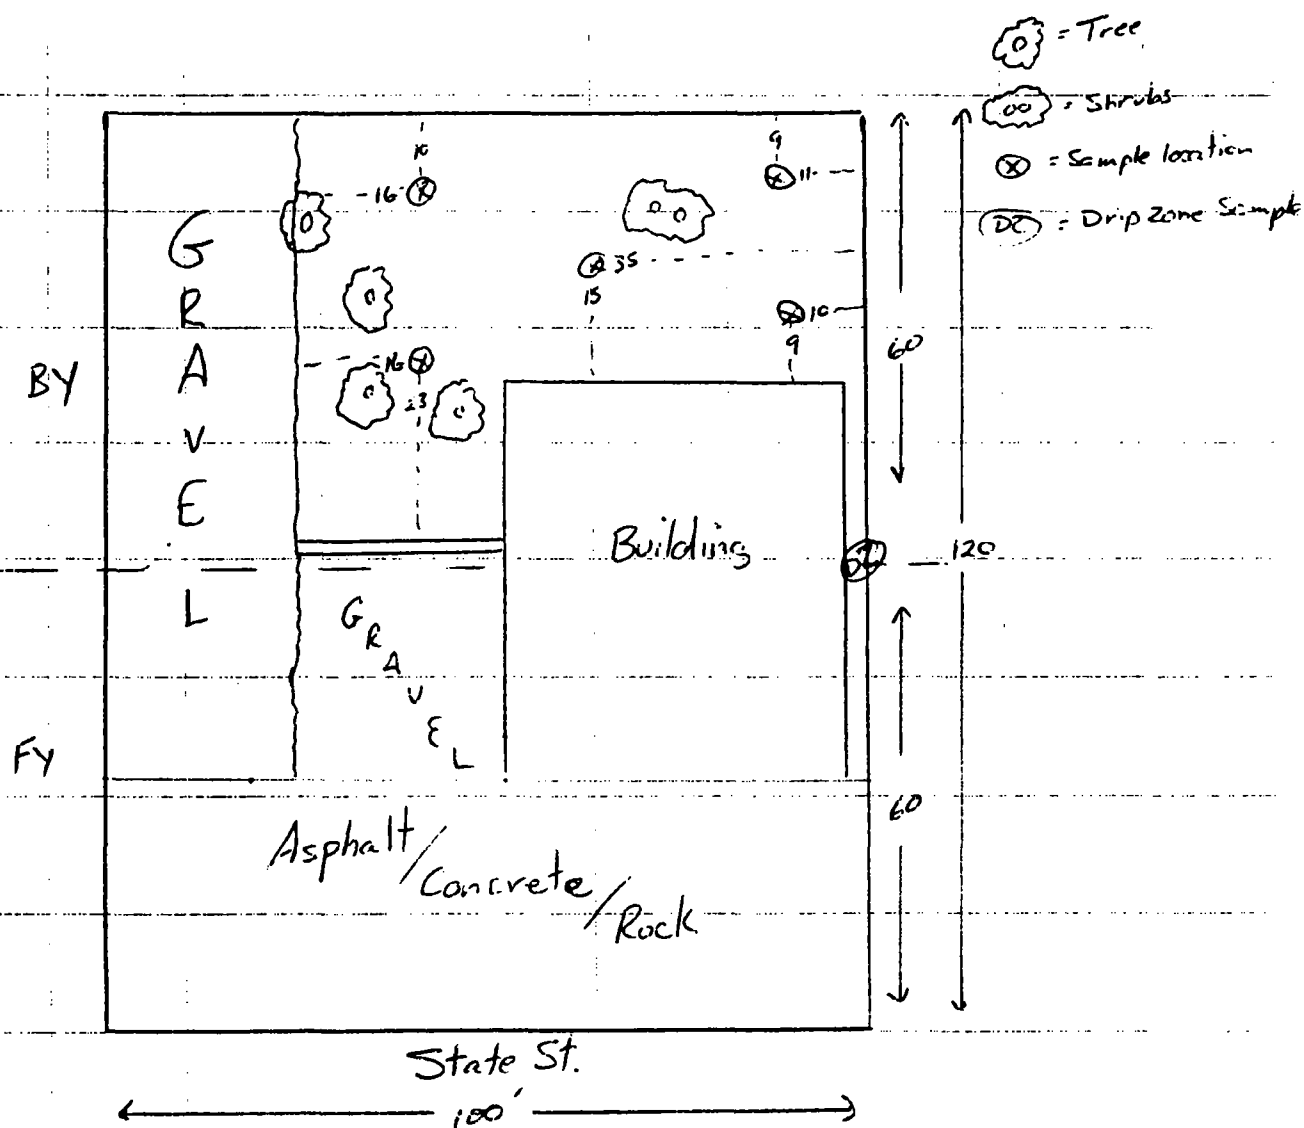 = Tree
= Shrubs
= Sample location
DZ = Drip Zone Sample
10
9
16
11
35
15
10
9
16
23
60
BY
GRAVEL
Building
DZ
120
GRAVEL
FY
60
Asphalt/Concrete/Rock
State St.
100'